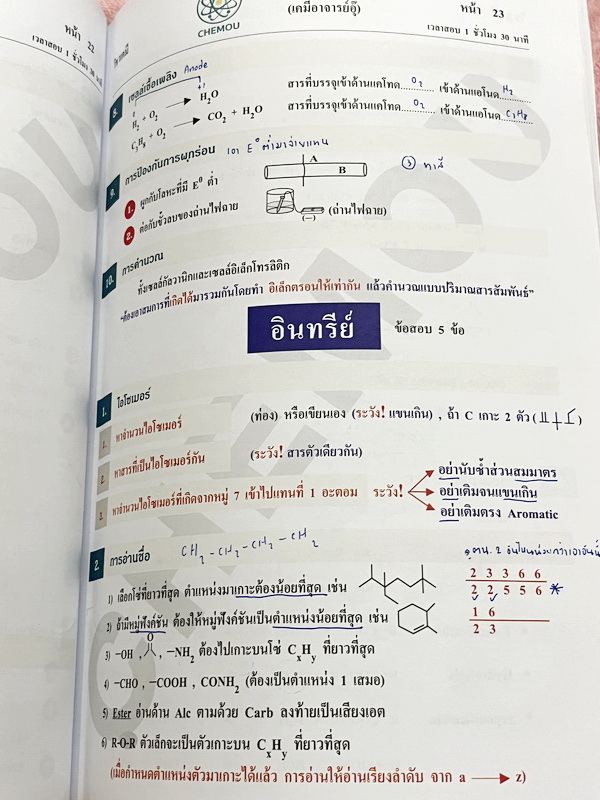 หน้า 22
เวลาสอบ 1 ชั่วโมง 30 นาที
CHEMOU
(เคมีอาจารย์อุ๊)
หน้า 23
เวลาสอบ 1 ชั่วโมง 30 นาที
8. เซลล์เชื้อเพลิง Anode
H2 + O2 → H2O
สารที่บรรจุเข้าด้านแคโทด...O2... เข้าด้านแอโนด...H2...
C3H8 + O2 → CO2 + H2O
สารที่บรรจุเข้าด้านแคโทด...O2... เข้าด้านแอโนด...C3H8...
9. การป้องกันการผุกร่อน
A
B
1. ผูกกับโลหะที่มี E0 ต่ำ
③ ทาสี
2. ต่อกับขั้วลบของถ่านไฟฉาย
(−) (ถ่านไฟฉาย)
10. การคำนวณ
ทั้งเซลล์กัลวานิกและเซลล์อิเล็กโทรลิติก
"ต้องเอาสมการที่เกิดได้มารวมกันโดยทำ อิเล็กตรอนให้เท่ากัน แล้วคำนวณแบบปริมาณสารสัมพันธ์"
อินทรีย์
ข้อสอบ 5 ข้อ
1. ไอโซเมอร์
1. หาจำนวนไอโซเมอร์ (ท่อง) หรือเขียนเอง (ระวัง! แขนเกิน) , ถ้า C เกาะ 2 ตัว
2. หาสารที่เป็นไอโซเมอร์กัน (ระวัง! สารตัวเดียวกัน)
3. หาจำนวนไอโซเมอร์ที่เกิดจากหมู่ 7 เข้าไปแทนที่ 1 อะตอม ระวัง!
อย่านับซ้ำส่วนสมมาตร
อย่าเติมจนแขนเกิน
อย่าเติมตรง Aromatic
2. การอ่านชื่อ
CH2 - CH2 - CH2 - CH2
1) เลือกโซ่ที่ยาวที่สุด ตำแหน่งมาเกาะต้องน้อยที่สุด เช่น
2 3 3 6 6
2 2 5 5 6
2) ถ้ามีหมู่ฟังค์ชัน ต้องให้หมู่ฟังค์ชันเป็นตำแหน่งน้อยที่สุด เช่น
1 6
2 3
O
3) –OH , , –NH2 ต้องไปเกาะบนโซ่ CxHy ที่ยาวที่สุด
4) –CHO , –COOH , CONH2 (ต้องเป็นตำแหน่ง 1 เสมอ)
5) Ester อ่านด้าน Alc ตามด้วย Carb ลงท้ายเป็นเสียงเอต
6) R-O-R ตัวเล็กจะเป็นตัวเกาะบน CxHy ที่ยาวที่สุด
(เมื่อกำหนดตำแหน่งตัวมาเกาะได้แล้ว การอ่านให้อ่านเรียงลำดับ จาก a → z)